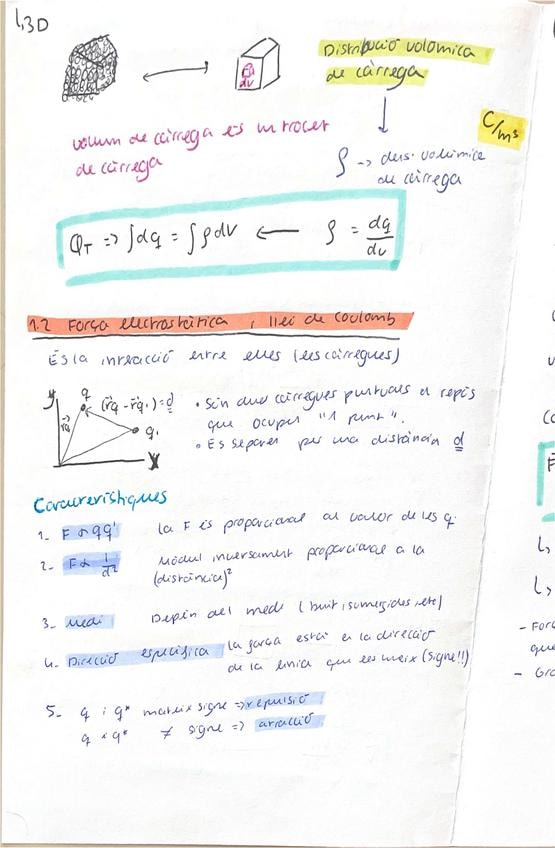 ↳ 3D
dq
dv
Distribució volúmica
de càrrega
volum de càrrega és un trocet
de càrrega
ρ → dens. volúmica
de càrrega
C/m³
Q_T => ∫dq = ∫ρdv ← ρ = dq/dv
1.2 Força electrostàtica, llei de Coulomb
És la interacció entre elles (les càrregues)
y
q
(r⃗q - r⃗q') = d
r⃗q
q'
x
• Són dues càrregues puntuals en repòs
que ocupen "1 punt".
• Es separen per una distància d
Característiques
1. F α qq' la F és proporcional al valor de les q.
2. F α 1/d² Mòdul inversament proporcional a la
(distància)²
3. Medi Depèn del medi (buit, sumergides, etc)
4. Direcció específica la força està en la direcció
de la línia que les uneix (signe!!)
5- q i q* mateix signe => repulsió
q i q* ≠ signe => atracció